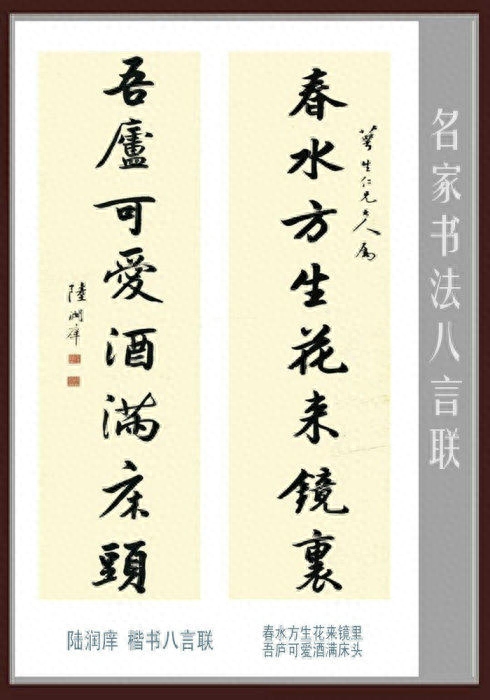 名家书法八言联
春水方生花来镜裏
萼生仁兄大人属
吾廬可愛酒满床頭
陸润庠
陆润庠 楷书八言联
春水方生花来镜里
吾庐可爱酒满床头